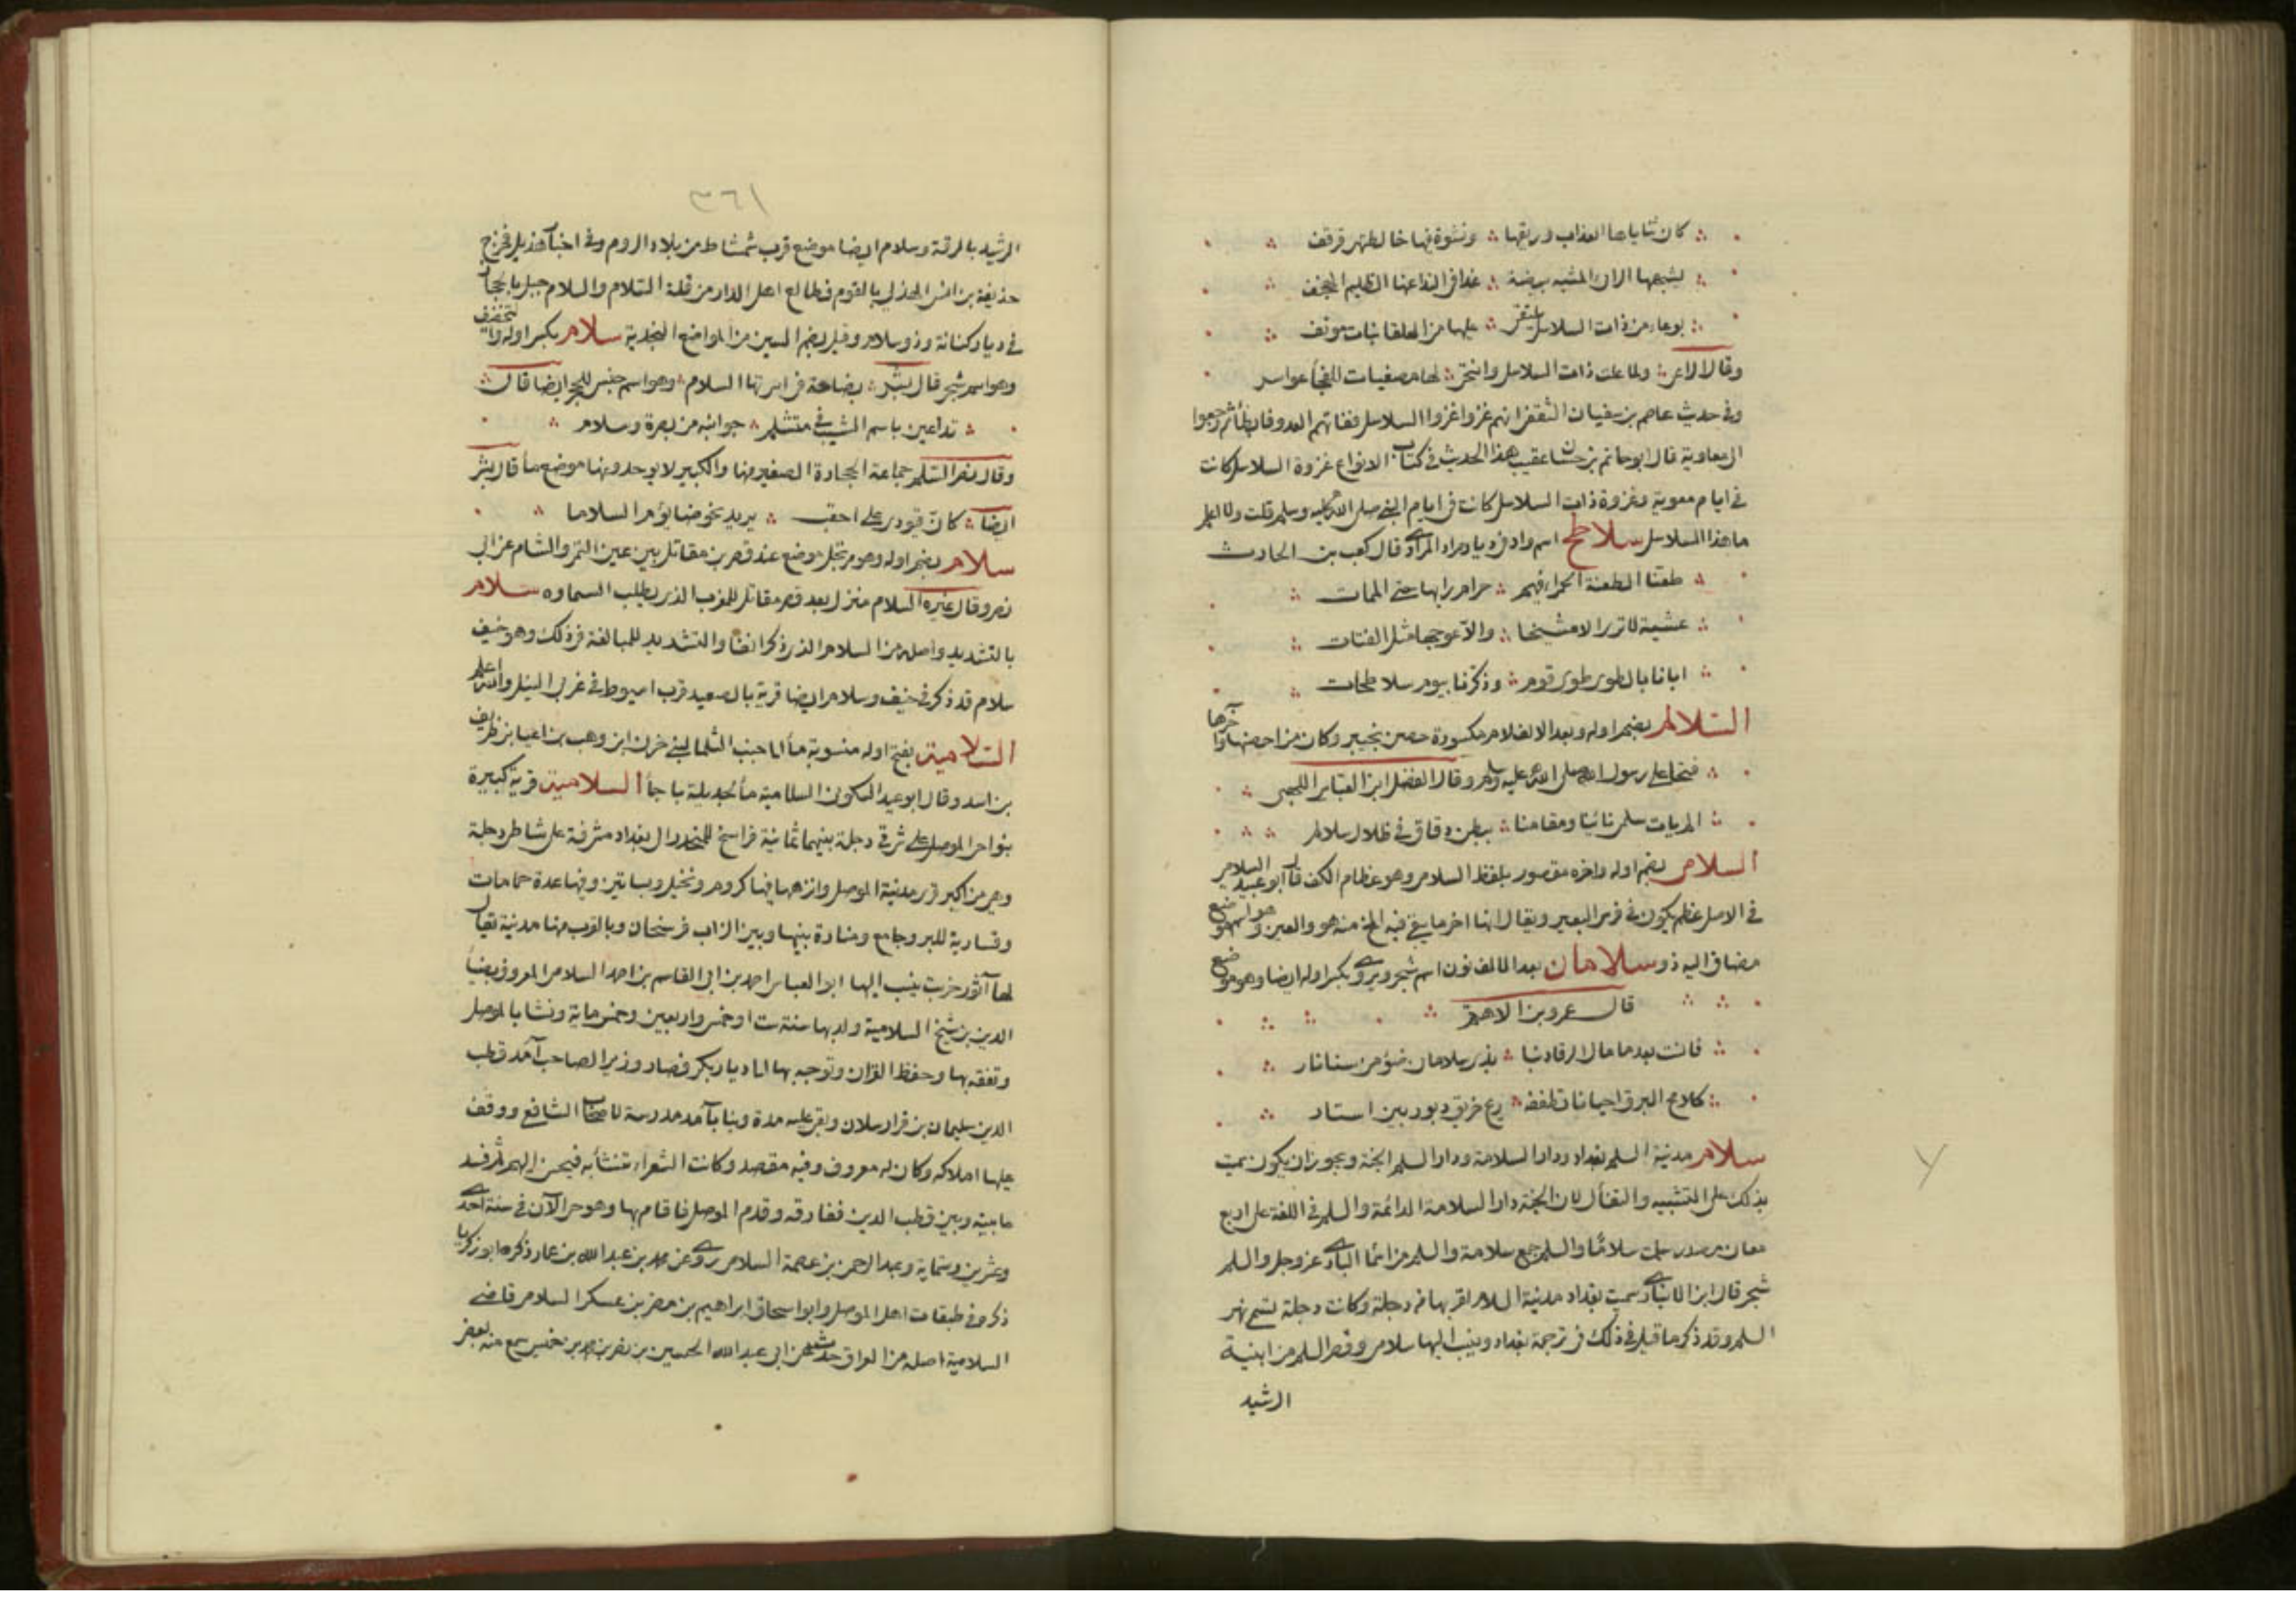 كان ثناياها العذاب وريقها ونشوة فيها خالطتهن قرقف
يشبهها الراى المشبه بيضة غدا فى الندا عنها الظليم الهجنف
بوعاء من ذات السلاسل يلتقى عليها من العلقا نبات مونف
وقال الراعى ولما علت ذات السلاسل وانتحى لها مصغيات للنجأ عواسر
وفى حديث عاصم بن سفيان الثقفى انهم غزوا غزوة السلاسل ففاتهم العدو فابطأ ثم رجعوا
الى معاوية قال ابو حاتم بن حبان عقيب هذا الحديث فى كتاب الانواع غزوة السلاسل كانت
فى ايام معوية وغزوة ذات السلاسل كانت فى ايام النبى صلى الله عليه وسلم قلت ولا اعلم
ما هذا السلاسل سلاطح اسم واد فى ديار مراد المرادى قال كعب بن الحارث
طعنا الطعنة الحمراء فيهم حرام رايها حتى الممات
عشية لا ترى الا مشيحا والا عوجها مثل القنات
ابانا بالطوى طوى قوم وذكرنا بيوم سلاطحات
السلالم بضم اوله وبعد الالف لام مكسورة حصن بخيبر وكان من احصنها واخرها
فتحا على رسول الله صلى الله عليه وسلم وقال الفضل ابن العباس اللهبى
الم يات سلمى نائينا ومقامنا ببطن دقاق فى ظلال سلالم
السلامى بضم اوله واخره مقصور بلفظ السلامى وهو عظام الكف قال ابو عبيد السلامى
فى الاصل عظم يكون فى فرس البعير ويقال انها اخر ما يبقى فيه المخ منه هو والعين وهو اسم موضع
مضاف اليه ذو سلامان بعد الالف نون اسم شجر ويروى بكسر اوله ايضا وهو موضع
قال عمرو بن الاهتم
فانت بعد ما مال الرقاد بنا بذى سلامان ضوء من سنا نار
كلامع البرق احيانا تطفئه ريح خريق دبور بين استار
سلام مدينة السلم بغداد ودار السلامة ودار السلم الجنة ويجوز ان يكون سميت
بذلك على التشبيه والتفأل لان الجنة دار السلامة الدائمة والسلم فى اللغة على اربع
معان مصدر سلمت سلامًا والسلم جمع سلامة والسلم من اسمأ البارى عز وجل والسلم
شجر قال ابن الانبارى سميت بغداد مدينة السلام لقربها من دجلة وكانت دجلة تسمى نهر
السلم وقد ذكر ما قيل فى ذلك فى ترجمة بغداد وينسب اليها سلامى وقصر السلم من ابنية
الرشيد
٣٦١
الرشيد بالرقة وسلام ايضا موضع قرب شمشاط من بلاد الروم وفى اخبار هذيل فخرج
حذيفة بن انس الهذلى بالقوم فطالع اهل الدار من قلة السلام والسلام جبل بالحجاز
فى ديار كنانة وذو سلام وقيل بضم السين من المواضع النجدية سلام بكسر اوله والتخفيف
وهو اسم شجر قال بشر بصاحة فى اسرتها السلام وهو اسم جنس للحجر ايضا قال
تداعين باسم الشيب فى متثلم جوانبه من بصرة وسلام
وقال نصر السلم جماعة الحجارة الصغير منها والكبير لا يوحدونها موضع مأ قال بشر
ايضا كان قتودى على احقب يريد نحوضا يؤم السلاما
سلام بضم اوله وهو مرتجل موضع عند قصر بن مقاتل بين عين التمر والشام عن ابى
نصر وقال غيره السلام منزل بعد قصر مقاتل للمغرب الذى يطلب السماوه سلام
بالتشديد واصله من السلام الذى ذكر انفا والتشديد للمبالغة فى ذلك وهو خيف
سلام قد ذكر فى خيف وسلام ايضا قرية بالصعيد قرب اسيوط فى غربى النيل والله اعلم
السلامية بفتح اوله منسوبة مأ الى جنب الثلما لبنى حزن ابن وهب بن اعيا بن ظريف
بن اسد وقال ابو عبيد السكونى السلامية مأ لجديلة باجأ السلامية قرية كبيرة
بنواحى الموصل على شرقى دجلة بينهما ثمانية فراسخ للمنحدر الى بغداد مشرفة على شاطى دجلة
وهى من اكبر قرى مدينة الموصل وانزهها فيها كروم ونخيل وبساتين وفيها عدة حمامات
وقيسارية للبر وجامع ومنارة بينها وبين الزاب فرسخان وبالقرب منها مدينة يقال
لها آثور خربت ينسب اليها ابو العباس احمد بن ابى القاسم بن احمد السلامى المعروف بضياء
الدين بن شيخ السلامية ولد بها سنة ست او خمس واربعين وخمس ماية ونشا بالموصل
وتفقه بها وحفظ القران وتوجه بها الى ديار بكر فصار وزيرا لصاحب آمد قطب
الدين سليمان بن قرا ارسلان وبقى عليه مدة وبنا بآمد مدرسة لاصحاب الشافعى ووقف
عليها املاكه وكان له معروف وفيه مقصد وكانت الشعراء تنتابه فيحسن اليهم ثم فسد
ما بينه وبين قطب الدين ففارقه وقدم الموصل فاقام بها وهو حى الآن فى سنة احدى
وعشرين وستماية وعبد الرحمن بن عصمة السلامى روى عن محمد بن عبد الله بن عمار ذكره ابو زكريا
ذكره فى طبقات اهل الموصل وابو اسحاق ابراهيم بن نصر بن عسكر السلامى قاضى
السلامية اصله من العراق حدث عن ابى عبد الله الحسين بن نصر بن محمد بن خميس سمع منه بعض